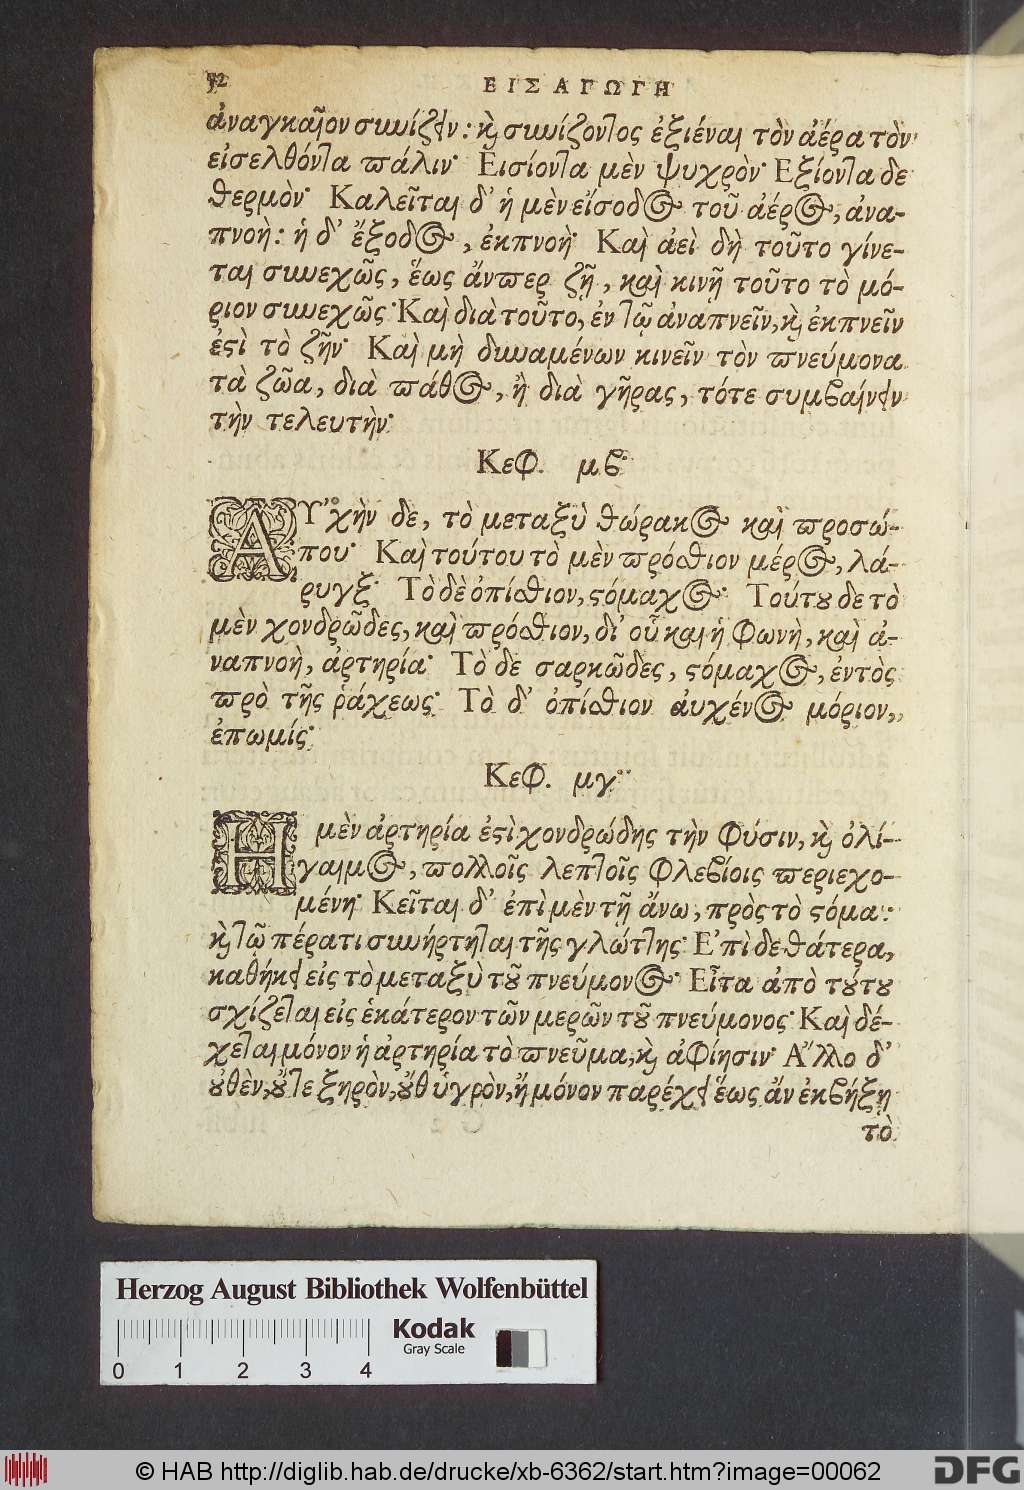 52 ΕΙΣΑΓΩΓΗ
ἀναγκαῖον συνίζειν: καὶ συνίζοντος ἐξιέναι τὸν ἀέρα τὸν
εἰσελθόντα πάλιν· Εἰσίοντα μὲν ψυχρὸν· Ἐξίοντα δε
θερμὸν· Καλεῖται δ' ἡ μὲν εἴσοδος τοῦ ἀέρος, ἀνα-
πνοὴ: ἡ δ' ἔξοδος, ἐκπνοὴ· Καὶ ἀεὶ δὴ τοῦτο γίνε-
ται συνεχῶς, ἕως ἄνπερ ζῇ, καὶ κινῇ τοῦτο τὸ μό-
ριον συνεχῶς· Καὶ διὰ τοῦτο, ἐν τῷ ἀναπνεῖν, καὶ ἐκπνεῖν
ἐστὶ τὸ ζῆν· Καὶ μὴ δυναμένων κινεῖν τὸν πνεύμονα
τὰ ζῶα, διὰ πάθος, ἢ διὰ γῆρας, τότε συμβαίνειν
τὴν τελευτὴν·
Κεφ. μβ·
ΑΥ᾿χὴν δε, τὸ μεταξὺ θώρακος καὶ προσώ-
που· Καὶ τούτου τὸ μὲν πρόσθιον μέρος, λά-
ρυγξ· Τὸ δὲ ὀπίσθιον, στόμαχος· Τούτου δε τὸ
μὲν χονδρῶδες, καὶ πρόσθιον, δι' οὗ καὶ ἡ φωνὴ, καὶ ἀ-
ναπνοὴ, ἀρτηρία· Τὸ δε σαρκῶδες, στόμαχος, ἐντὸς
πρὸ τῆς ῥάχεως· Τὸ δ' ὀπίσθιον αὐχένος μόριον,,
ἐπωμίς·
Κεφ. μγ··
Η μὲν ἀρτηρία ἐστὶ χονδρώδης τὴν φύσιν, καὶ ὀλί-
γαιμος, πολλοῖς λεπτοῖς φλεβίοις περιεχο-
μένη· Κεῖται δ' ἐπὶ μὲν τῇ ἄνω, πρὸς τὸ στόμα:
καὶ τῷ πέρατι συνήρτηται τῆς γλώττης· Ἐπὶ δε θάτερα,
καθήκει εἰς τὸ μεταξὺ τοῦ πνεύμονος· Εἶτα ἀπὸ τούτου
σχίζεται εἰς ἑκάτερον τῶν μερῶν τοῦ πνεύμονος· Καὶ δέ-
χεται μόνον ἡ ἀρτηρία τὸ πνεῦμα, καὶ ἀφίησιν· Ἄλλο δ'
οὐθὲν, οὔτε ξηρὸν, οὔθ ὑγρὸν, ἢ μόνον παρέχει ἕως ἂν ἐκβήξῃ
τὸ
Herzog August Bibliothek Wolfenbüttel
Kodak
Gray Scale
0 1 2 3 4
© HAB http://diglib.hab.de/drucke/xb-6362/start.htm?image=00062
DFG